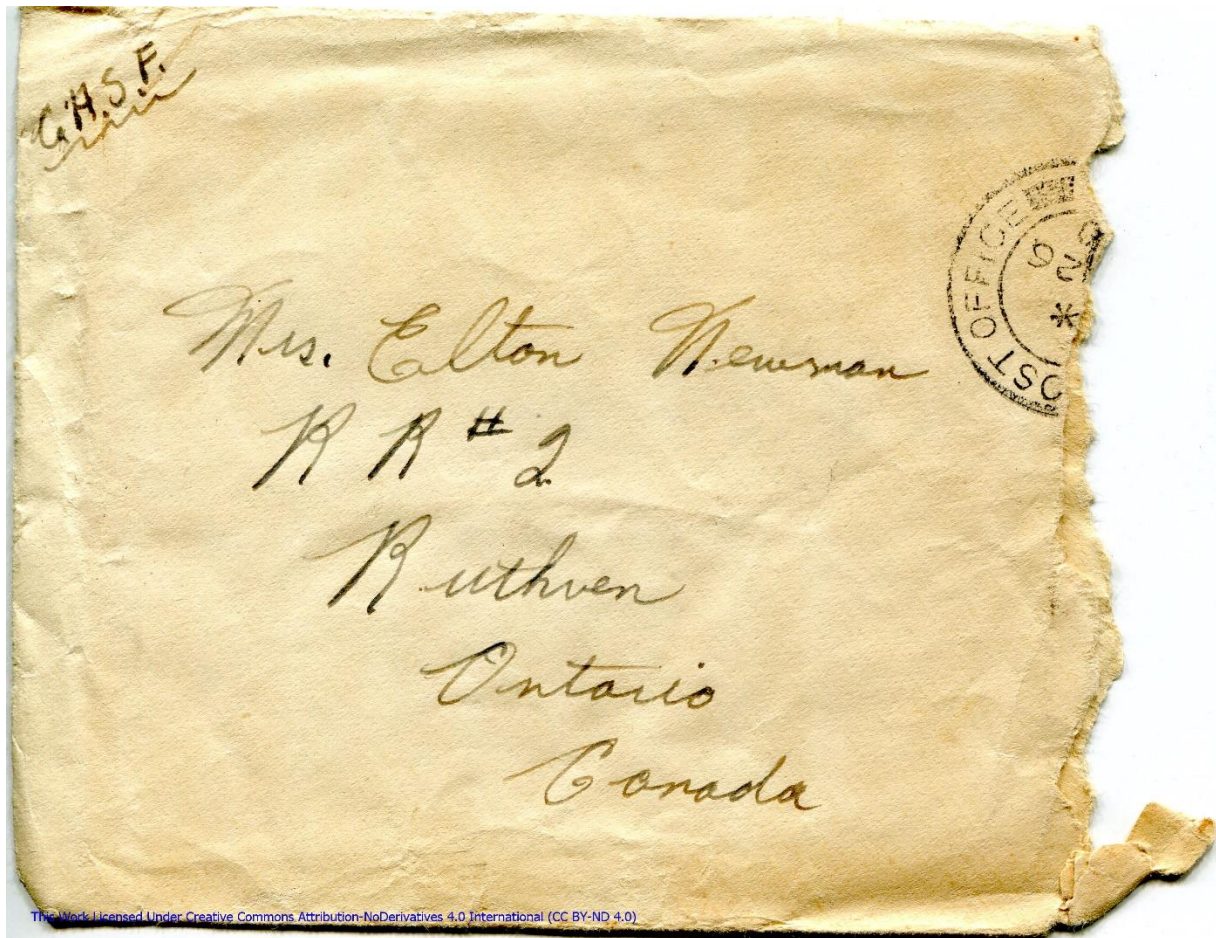 C.A.S.F.
OST OFFICE
26
*
Mrs. Elton Newman
R R # 2
Ruthven
Ontario
Canada
This Work Licensed Under Creative Commons Attribution-NoDerivatives 4.0 International (CC BY-ND 4.0)